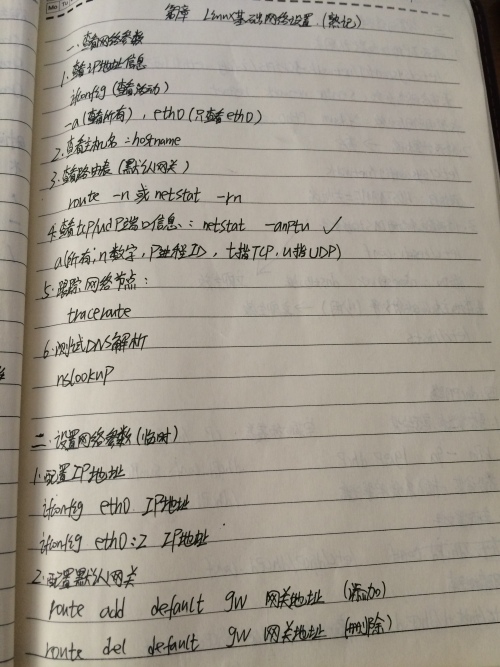 章 Linux基础网络设置 (熟记)
一、查看网络参数
1. 查看IP地址信息
ifconfig (查看活动)
-a (查看所有) , eth0 (只查看eth0)
2. 查看主机名 : hostname
3. 查看路由表 (默认网关)
route -n 或 netstat -rn
4. 查看tcp/udp端口信息 : netstat -anptu ✓
a(所有; n数字, P进程ID, t指TCP, u指UDP)
5. 跟踪网络节点 :
traceroute
6. 测试DNS解析
nslookup
二、设置网络参数 (临时)
1. 配置IP地址
ifconfig eth0 IP地址
ifconfig eth0:2 IP地址
2. 配置默认网关
route add default gw 网关地址 (添加)
route del default gw 网关地址 (删除)